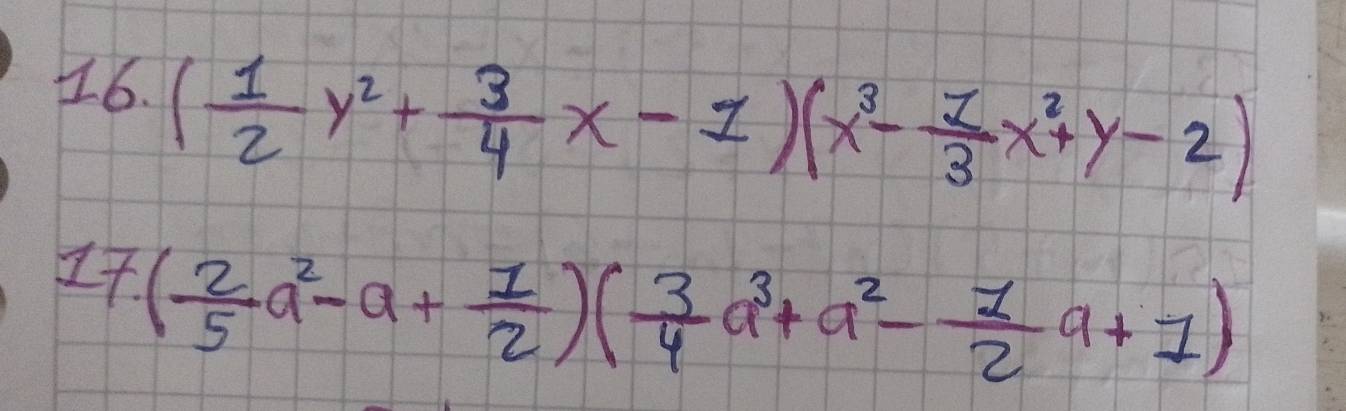 16. (1/2 y² + 3/4 x - 1)(x³ - 1/3 x² + y - 2)
17. (2/5 a² - a + 1/2)(3/4 a³ + a² - 1/2 a + 1)